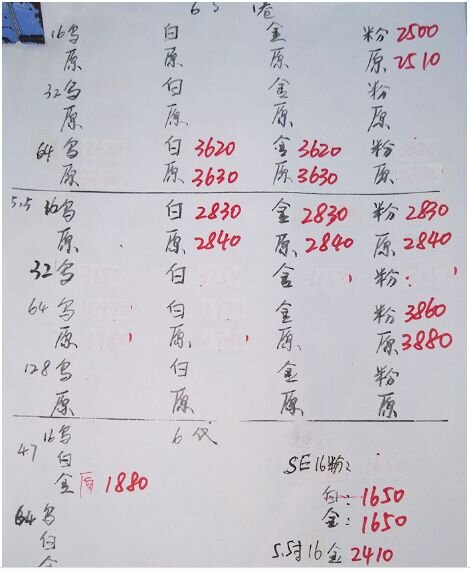 16乌 白 金 粉 2500
原 原 原 原 2510
32乌 白 金 粉
原 原 原 原
64乌 白 3620 金 3620 粉
原 原 3630 原 3630 原
5.5 16乌 白 2830 金 2830 粉 2830
原 原 2840 原 2840 原 2840
32乌 白 金 粉
64乌 白 金 粉 3860
原 原 原 原 3880
128乌 白 金 粉
原 原 原 原
47 16乌 6代
白
金 原 1880
SE16粉:
白: 1650
金: 1650
5.5寸16金 2410
64乌
白
金